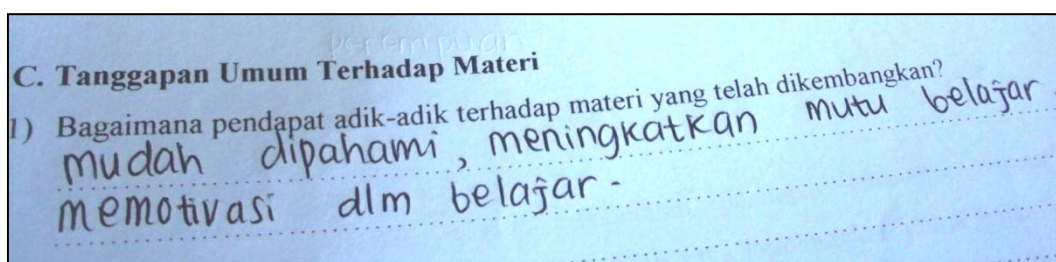 perempuan
C. Tanggapan Umum Terhadap Materi
1) Bagaimana pendapat adik-adik terhadap materi yang telah dikembangkan?
mudah dipahami, meningkatkan mutu belajar
memotivasi dlm belajar.